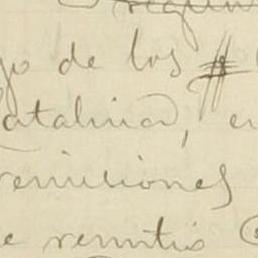 go de los #
atalina, e
remisiones
e remitió